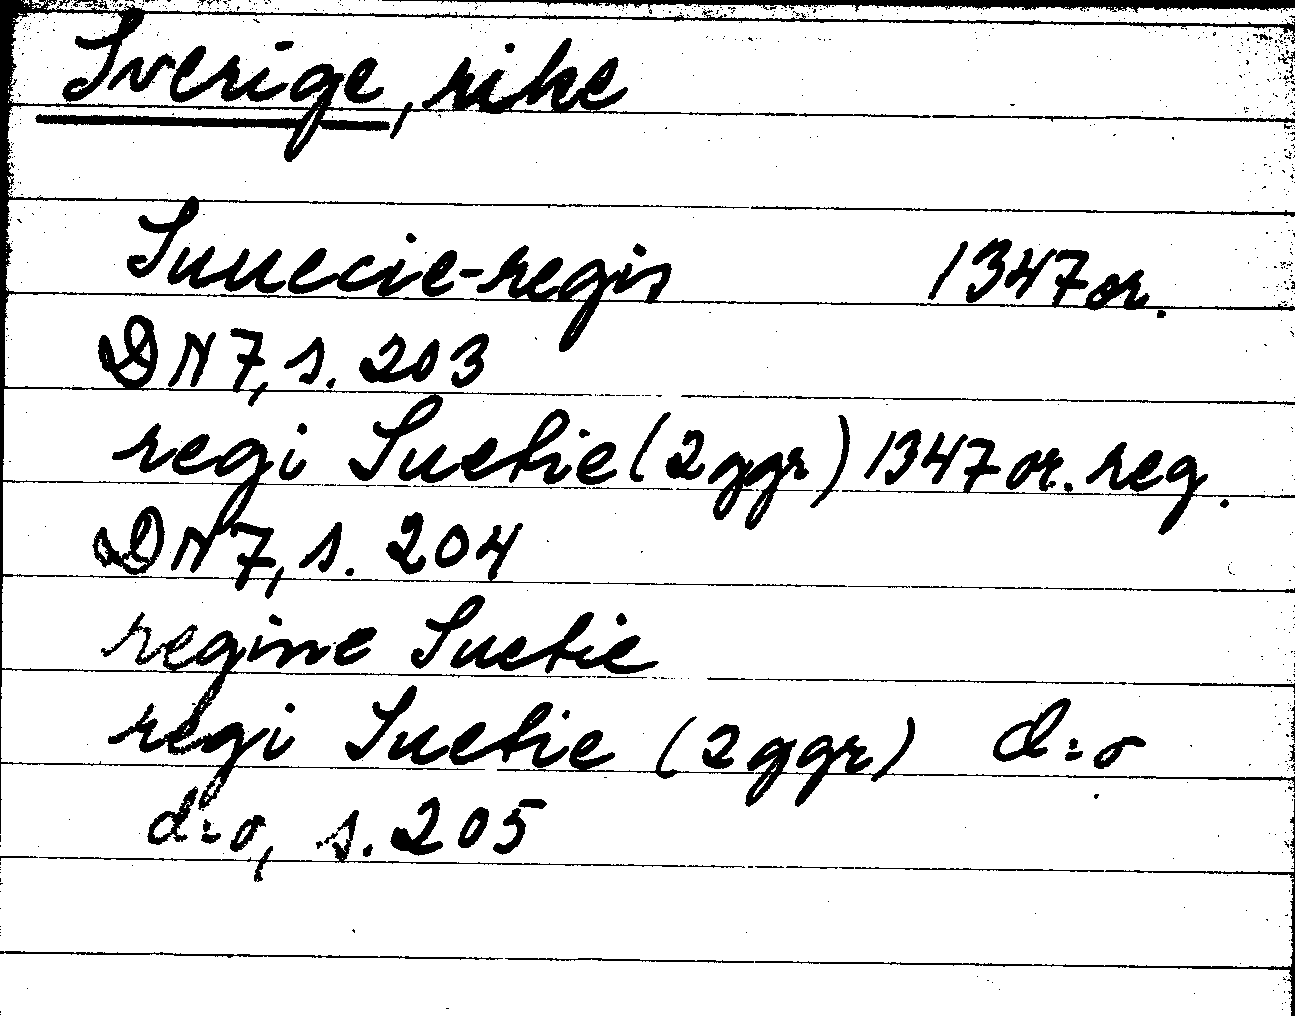 Sverige, rike
Suuecie-regis 1347 or.
DN 7, s. 203
regi Suetie (2 ggr) 1347 or. reg.
DN 7, s. 204
regine Suetie
regi Suetie (2 ggr) d:o
d:o, s. 205